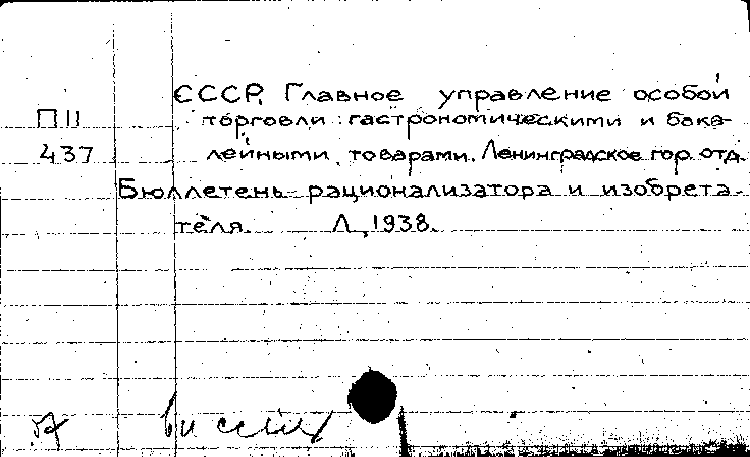 СССР. Главное управление особой
П11 торговли гастрономическими и бака-
437 лейными товарами. Ленинградское гор. отд.
Бюллетень рационализатора и изобрета-
теля. Л., 1938.